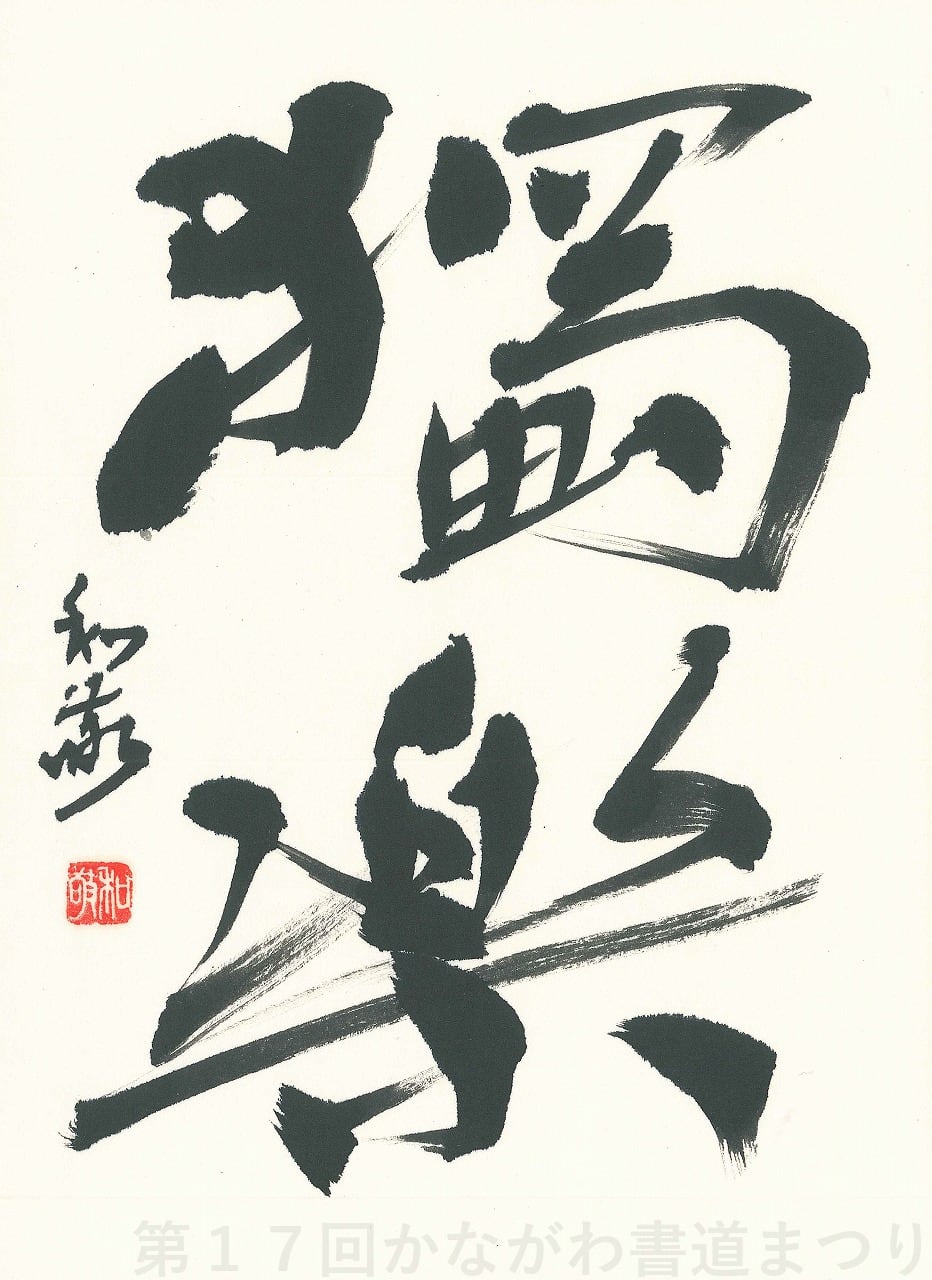 獨樂
和敬
和敬
第１７回かながわ書道まつり